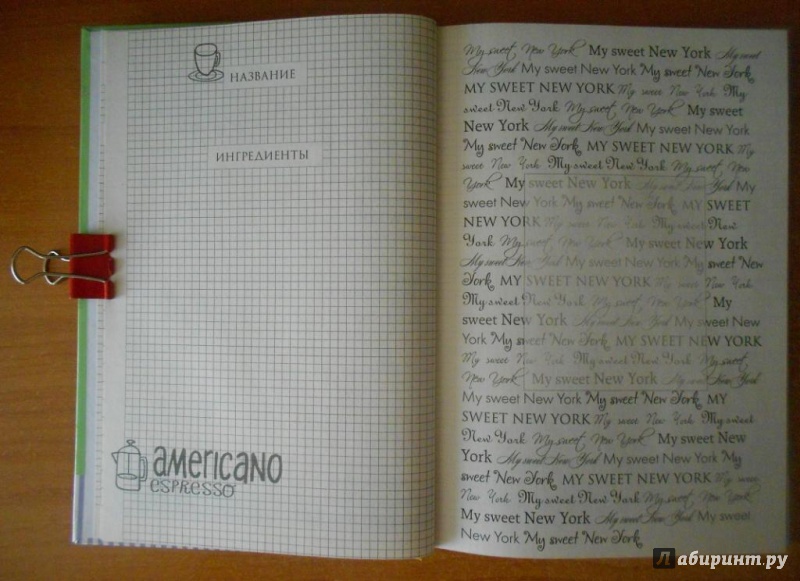 НАЗВАНИЕ
ИНГРЕДИЕНТЫ
americano
espresso
My sweet New York My sweet New York My sweet
New York My sweet New York My sweet New York
MY SWEET NEW YORK My sweet New York My
sweet New York My sweet New York My sweet
New York My sweet New York My sweet New York
My sweet New York MY SWEET NEW YORK My
sweet New York My sweet New York My sweet New
York My sweet New York My sweet New York My
sweet New York My sweet New York MY SWEET
NEW YORK My sweet New York My sweet New
York My sweet New York My sweet New York
My sweet New York My sweet New York My sweet New
York MY SWEET NEW YORK My sweet New York
My sweet New York My sweet New York My
sweet New York My sweet New York My sweet New
York My sweet New York MY SWEET NEW YORK
My sweet New York My sweet New York My sweet
New York My sweet New York My sweet New York
My sweet New York My sweet New York MY
SWEET NEW YORK My sweet New York My sweet
New York My sweet New York My sweet New
York My sweet New York My sweet New York My
sweet New York MY SWEET NEW YORK My sweet
New York My sweet New York My sweet New York
My sweet New York My sweet New York My sweet
New York My sweet New York
Лабиринт.ру